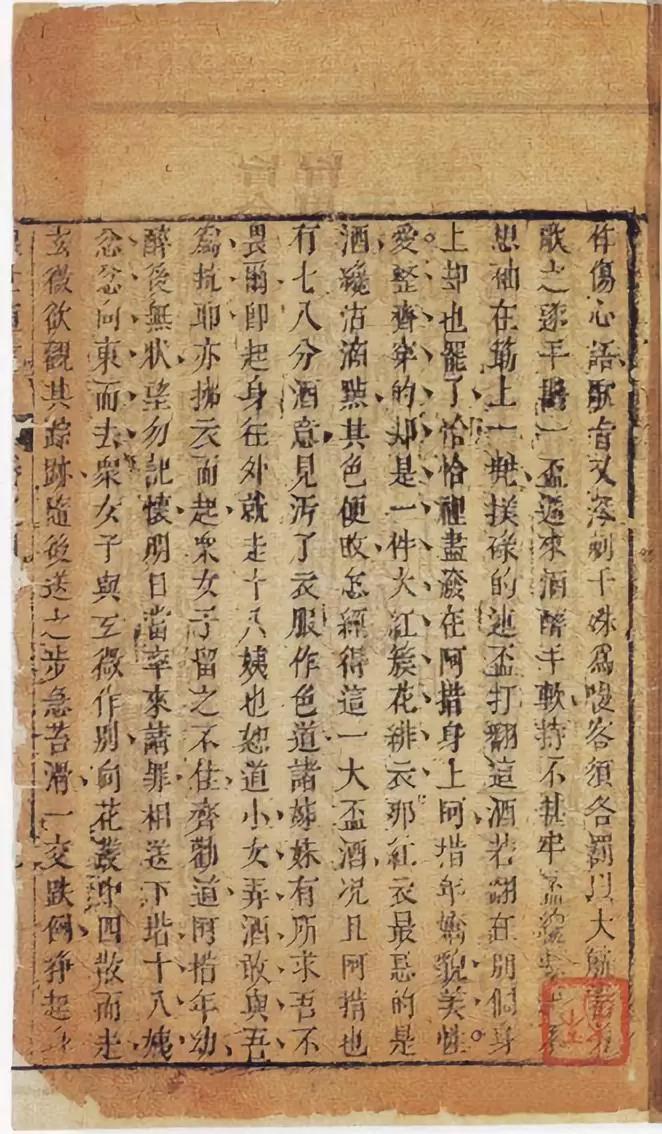 作傷心語歌旨又深刺予殊爲慢客須各罰以大觥當
歌之遂手斟一盃遞來酒醉手軟持不甚牢
想袖在筯上一兜撲碌的連盃打翻這酒若翻在別個身
上却也罷了恰恰裡盡潑在阿措身上阿措年嬌貌美性
愛整齊穿的却是一件大紅簇花緋衣那紅衣最忌的是
酒纔沾滴點其色便敗怎經得這一大盃酒况且阿措也
有七八分酒意見汚了衣服作色道諸姊妹有所求吾不
畏爾卽起身往外就走十八姨也怒道小女弄酒敢與吾
爲抗耶亦拂衣而起衆女子留之不住齊勸道阿措年幼
醉後無狀望勿記懷明日當率來請罪相送下堦十八姨
忿忿向東而去衆女子與玄微作別向花叢中四散而走
玄微欲觀其踪跡隨後送之步急苔滑一交跌倒掙起身